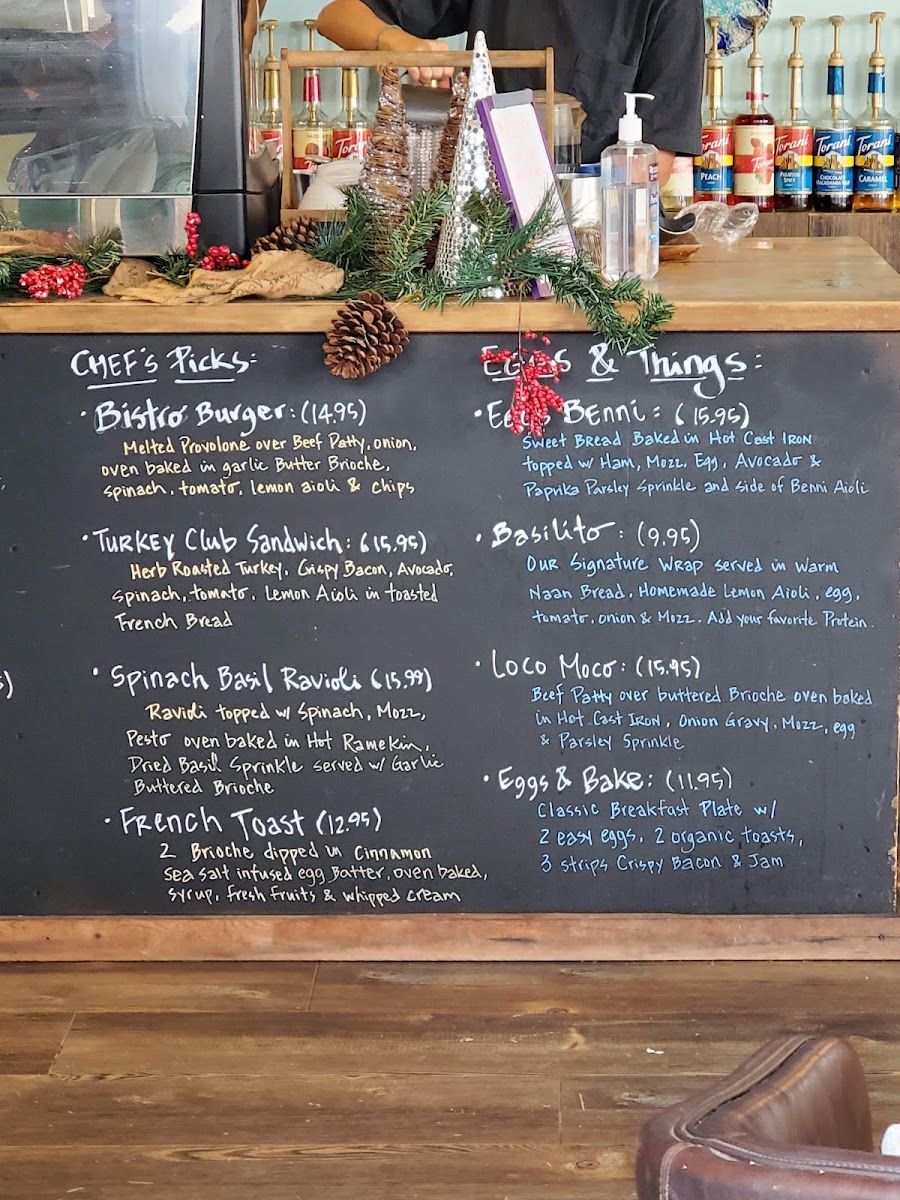 Torani
PEACH
Torani
Torani
PUMPKIN SPICE
Torani
CHOCOLATE MACADAMIA NUT
Torani
CARAMEL
CHEF'S PICKS:
• BISTRO BURGER: (14.95)
Melted Provolone over Beef Patty, onion,
oven baked in garlic Butter Brioche,
spinach, tomato, lemon aioli & chips
• TURKEY Club Sandwich: (15.95)
Herb Roasted Turkey, Crispy Bacon, Avocado,
Spinach, tomato, Lemon Aioli in toasted
French Bread
• Spinach Basil Ravioli (15.99)
Ravioli topped w/ Spinach, Mozz,
Pesto oven baked in Hot Ramekin,
Dried Basil Sprinkle served w/ Garlic
Buttered Brioche
• FRENCH TOAST (12.95)
2 Brioche dipped in Cinnamon
sea salt infused egg Batter, oven baked,
syrup, fresh fruits & whipped cream
EGGS & Things:
• BENNI: (15.95)
Sweet Bread Baked in Hot Cast IRON
topped w/ Ham, Mozz, Egg, Avocado &
Paprika Parsley Sprinkle and side of Benni Aioli
• Basilito: (9.95)
OUR Signature WRAP served in warm
Naan Bread, Homemade Lemon Aioli, egg,
tomato, onion & Mozz. Add your favorite Protein.
• Loco Moco: (15.95)
Beef Patty over buttered Brioche oven baked
in Hot Cast IRON, Onion Gravy, Mozz, egg
& Parsley Sprinkle
• Eggs & Bake: (11.95)
Classic Breakfast Plate w/
2 easy eggs, 2 organic toasts,
3 strips Crispy Bacon & Jam